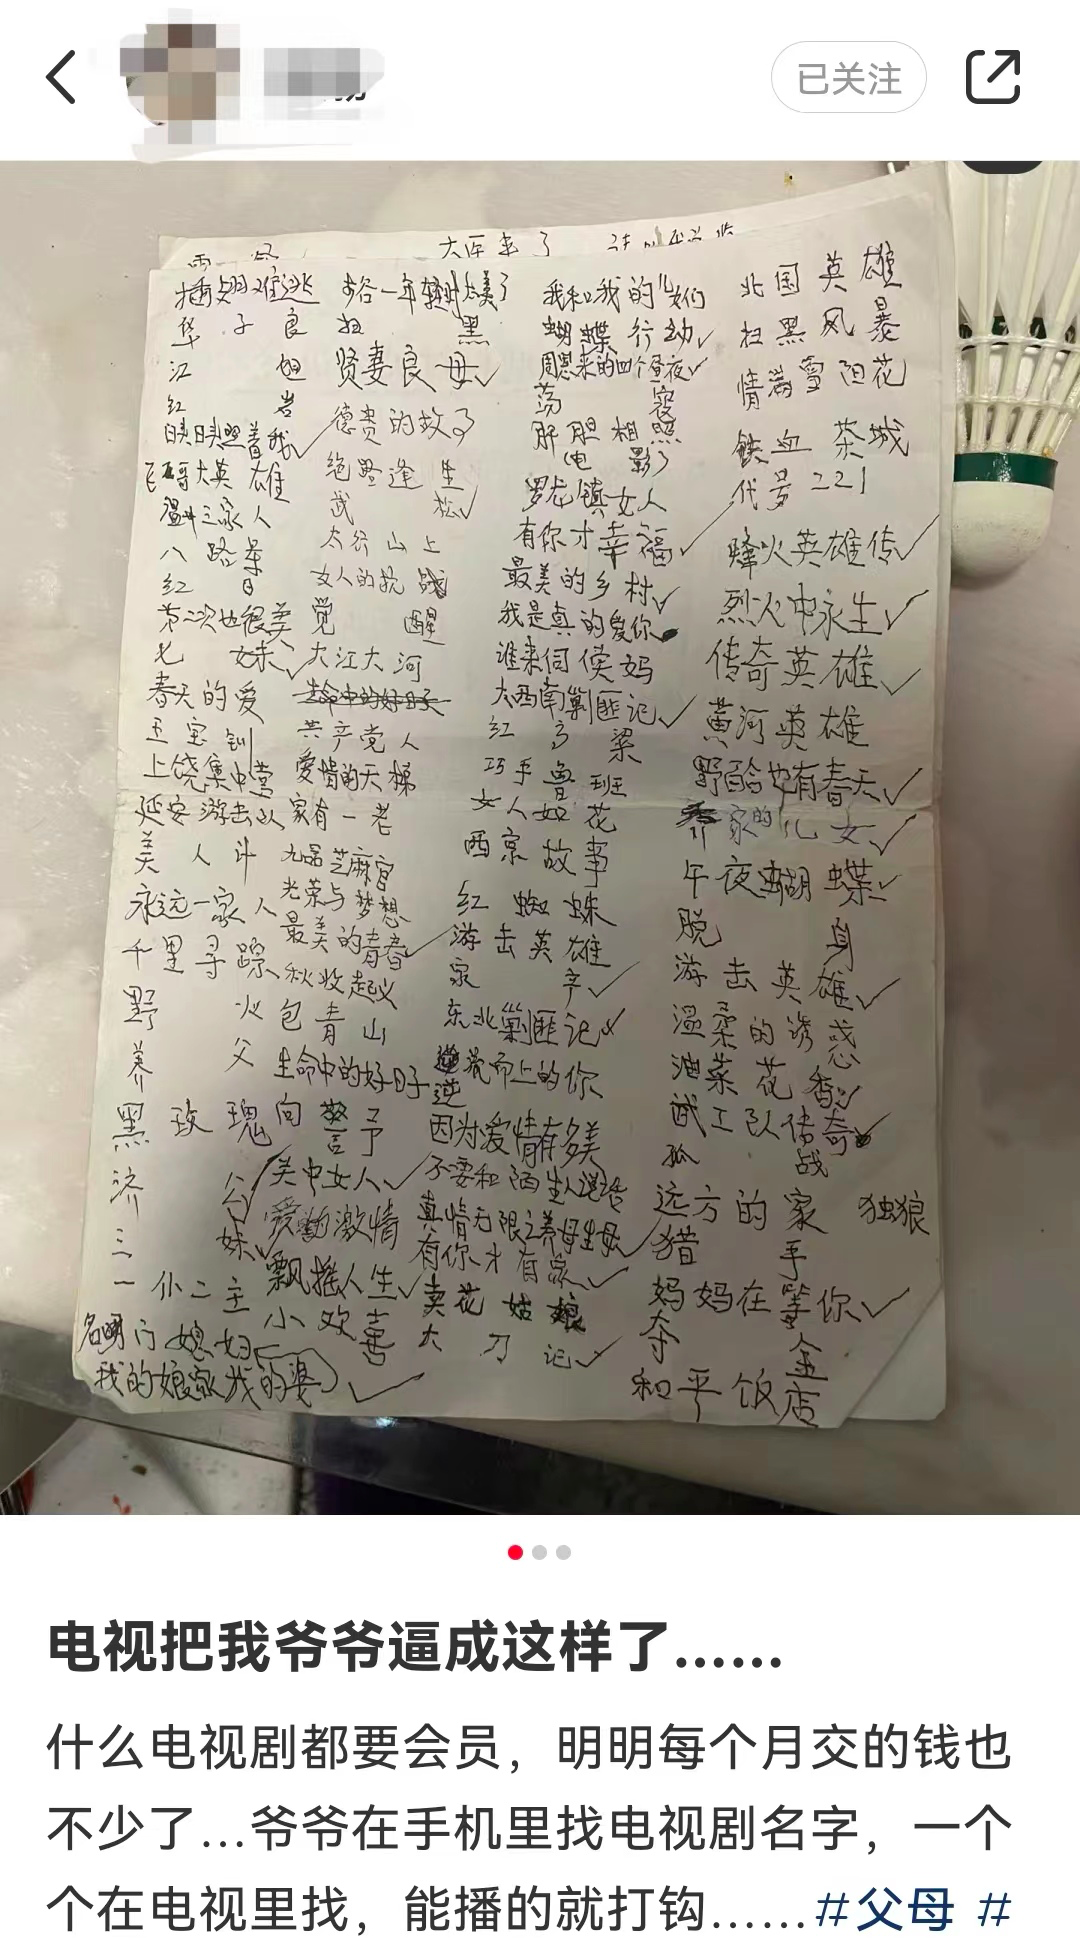 已关注
插翅难逃
华子良
江姐
红岩
太阳照着我
大英雄
三家人
八路军
红日
第二次也很美
七妹
春天的爱
王宝钏
上饶集中营
延安游击队
美人计
永远一家人
千里寻踪
野火
养父
黑玫瑰
济公
三妹
一仆二主
名门媳妇
我的娘家我的婆
扫黑
贤妻良母✓
德贵的故事
绝路逢生
武松✓
太行山上
女人的抗战
觉醒
大江大河
生命中的好日子
共产党人
爱情的天梯
家有一老
九品芝麻官
光荣与梦想
最美的青春✓
秋收起义
包青山
生命中的好日子
向警予
关中女人✓
爱的激情
飘摇人生✓
小欢喜
我和我的儿女们
蝴蝶行动✓
周恩来的四个昼夜✓
荡寇
肝胆相照
(电影)
罗龙镇女人
有你才幸福✓
最美的乡村✓
我是真的爱你
谁来伺候妈
大西南剿匪记✓
红高粱
巧手鲁班
女人如花
西京故事
红蜘蛛
游击英雄
家宴✓
东北剿匪记✓
逆流而上的你
逆
因为爱情有多美
不要和陌生人说话
真情无限之养母生母✓
有你才有家✓
卖花姑娘
大刀记✓
北国英雄
扫黑风暴
情满雪阳花
铁血茶城
代号221
烽火英雄传✓
烈火中永生✓
传奇英雄✓
黄河英雄
野百合也有春天✓
乔家的儿女✓
午夜蝴蝶✓
脱身
游击英雄✓
温柔的诱惑
油菜花香
武工队传奇
孤战
远方的家 独狼
猎手
妈妈在等你✓
夺金
和平饭店
电视把我爷爷逼成这样了……
什么电视剧都要会员，明明每个月交的钱也
不少了…爷爷在手机里找电视剧名字，一个
个在电视里找，能播的就打钩……#父母 #